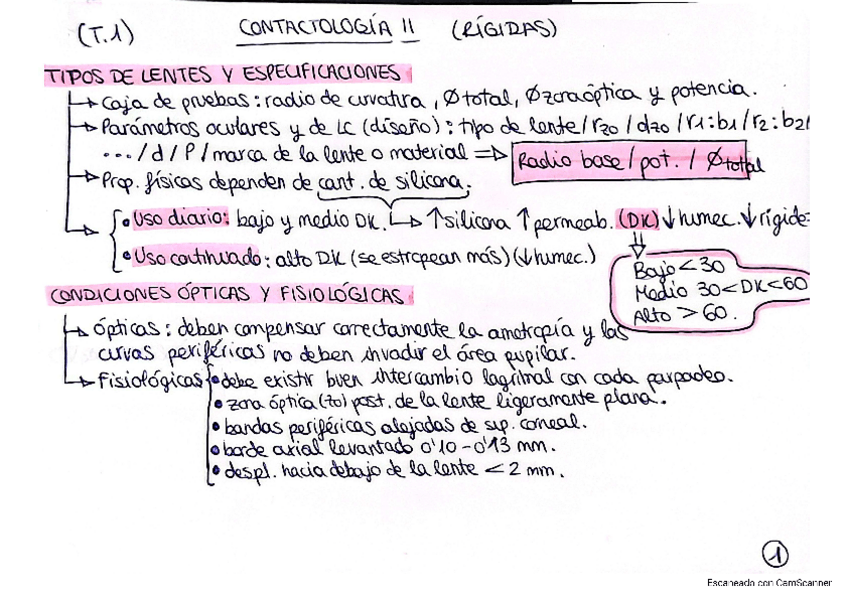 (T.1) CONTACTOLOGÍA II (RÍGIDAS)
TIPOS DE LENTES Y ESPECIFICACIONES
↳ Caja de pruebas: radio de curvatura, Ø total, Ø zona óptica y potencia.
→ Parámetros oculares y de LC (diseño): tipo de lente / rzo / dzo / r1:b1 / r2:b2/
... / d / P / marca de la lente o material ⇒ Radio base / pot. / Ø total
→ Prop. físicas dependen de cant. de silicona.
• Uso diario: bajo y medio DK. ↳ ↑silicona ↑permeab. (DK) ↓humec. ↓rigide
• Uso continuado: alto DK (se estropean más) (↓humec.)
Bajo < 30
Medio 30 < DK < 60
Alto > 60.
CONDICIONES ÓPTICAS Y FISIOLÓGICAS
↳ Ópticas: deben compensar correctamente la ametropía y las
curvas periféricas no deben invadir el área pupilar.
↳ Fisiológicas • debe existir buen intercambio lagrimal con cada parpadeo.
• zona óptica (zo) post. de la lente ligeramente plana.
• bandas periféricas alejadas de sup. corneal.
• borde axial levantado 0'10 - 0'13 mm.
• despl. hacia debajo de la lente < 2 mm.
1
Escaneado con CamScanner